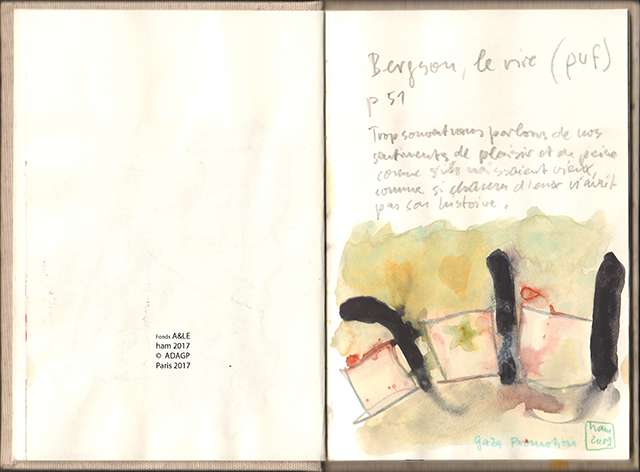 Fonds A&LE
ham 2017
© ADAGP
Paris 2017
Bergson, le rire (puf)
p 51
Trop souvent nous parlons de nos
sentiments de plaisir et de peine
comme s'ils naissaient vieux,
comme si chacun d'eux n'avait
pas son histoire.
gaza promotion
ham
2009